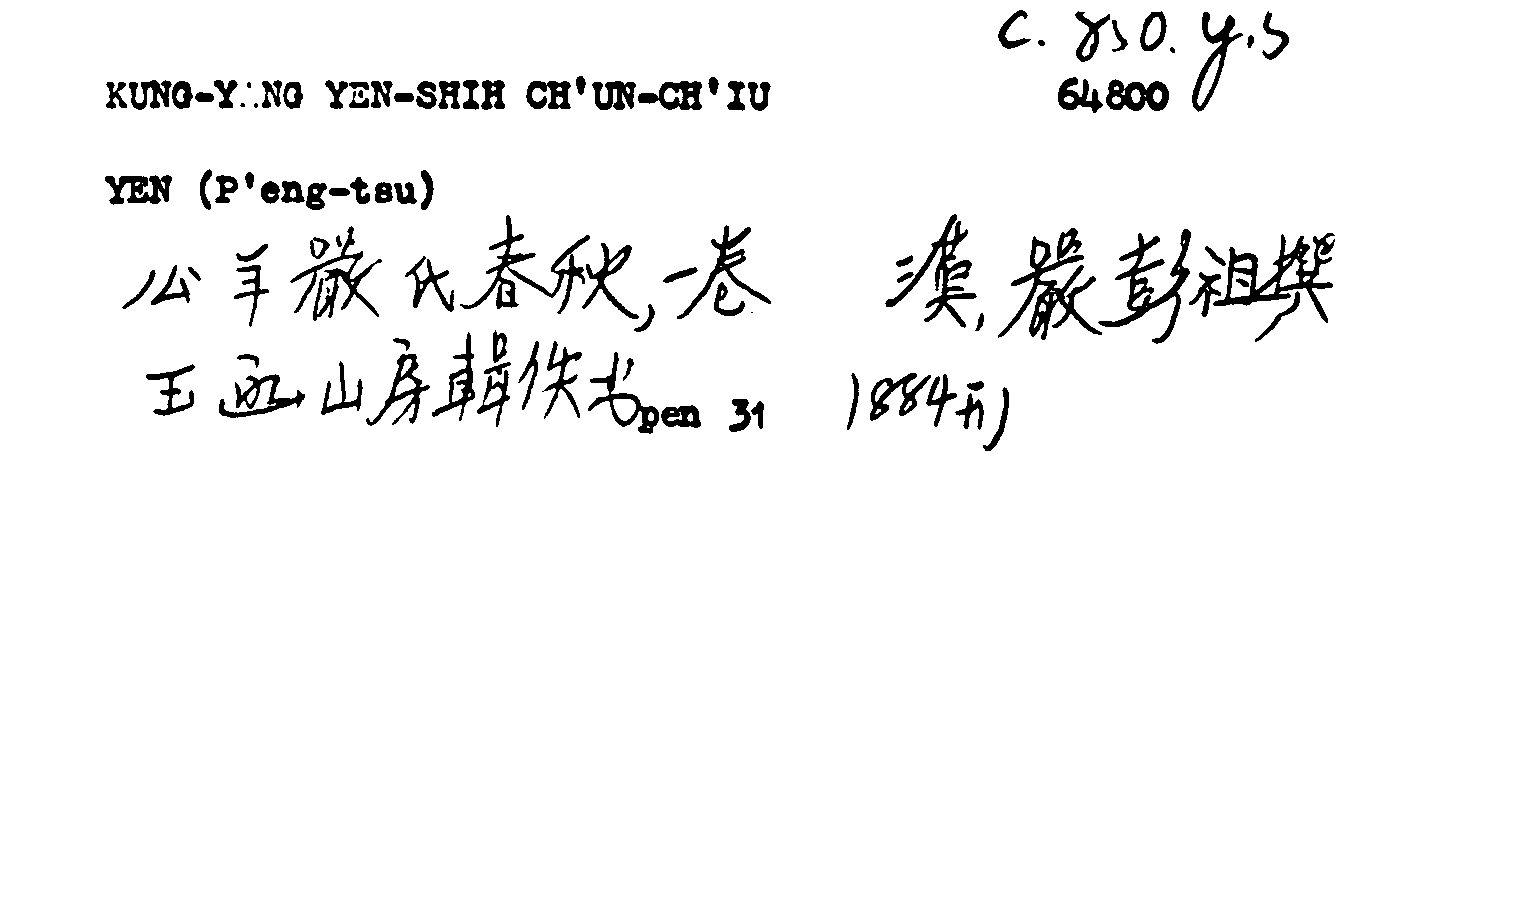 C. 850. Y.5
KUNG-YANG YEN-SHIH CH'UN-CH'IU 64800
YEN (P'eng-tsu)
公羊嚴氏春秋,一卷 漢,嚴彭祖撰
玉函山房輯佚书pen 31 1884刊